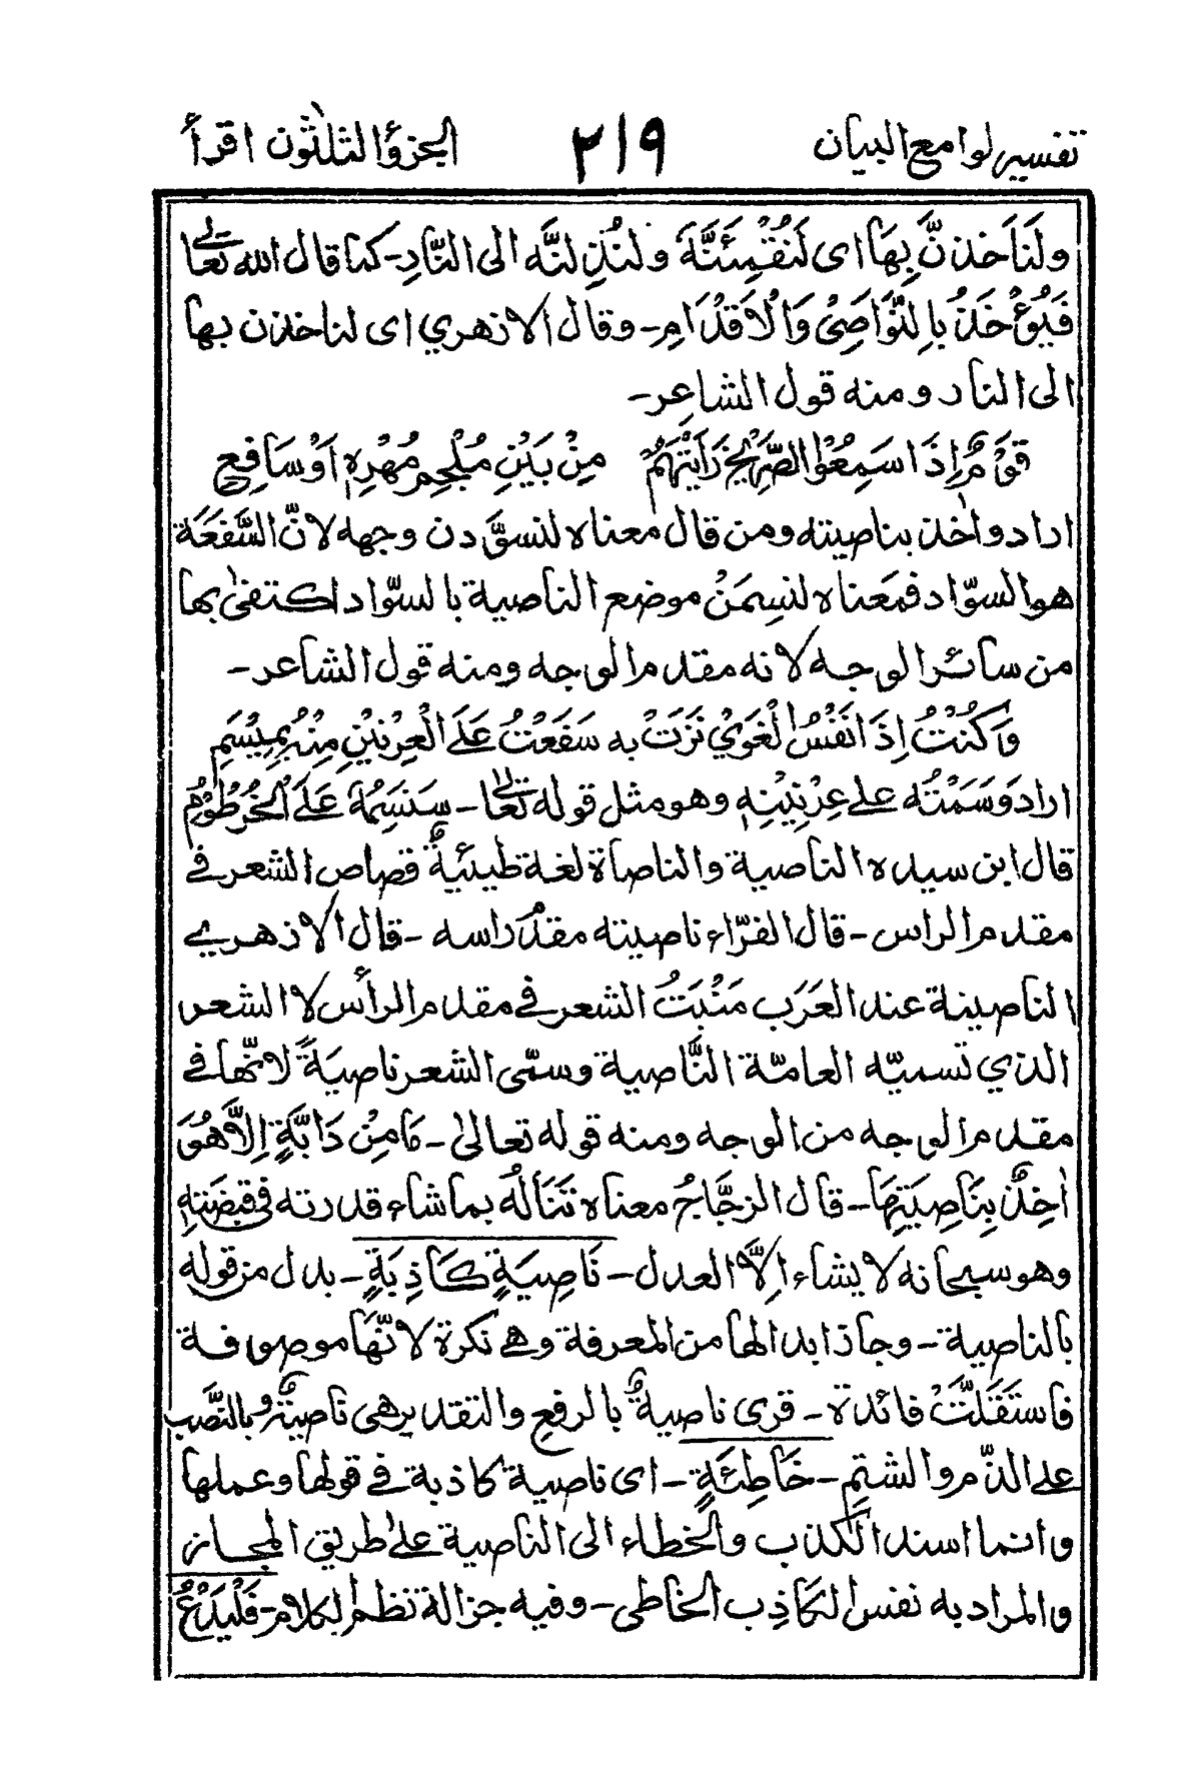 تفسير لوامع البيان ٢١٩ الجزؤ الثلثون اقرأ
ولَنَأخذنَّ بِهَا اى لَنُقْمِئَنَّهَ ولنُذِلنَّه الى النَّارِ - كما قال الله تعالى
فَيُؤْخَذُ بِالنَّوَاصِىْ وَالْاَقْدَامِ - وقال الازهري اى لنأخذن بها
الى النار ومنه قول الشاعِر -
قَوْمٌ اِذَا سَمِعُوْا الصَّرِيْخَ رَاَيْتَهُمْ مِنْ بَيْنِ مُلْجِمِ مُهْرِهٖ اَوْ سَافِعٖ
اراد واٰخذ بناصيته ومن قال معناه لنسوَّدن وجهه لانّ السَّفعَة
هو السوّاد فمعناه لنسِمَنْ موضع الناصية بالسوّاد اكتفىٰ بها
من سائر الوجه لانه مقدم الوجه ومنه قول الشاعر -
وَاَكُنْتُ اِذَا نَفْسُ الْغَوِيْ نَزَتْ به سَفَعْتُ عَلَے الْعِرْنِيْنِ مِنْهُ بِمِيْسَمِ
اراد وَسَمْتُه علے عِرْنِيْنِهٖ وهو مثل قوله تعالىٰ - سَنَسِمُهٗ عَلَے الْخُرْطُوْمِ
قال ابن سيده الناصية والناصاة لغة طيئيةٌ قصاص الشعر فے
مقدم الراس - قال الفرّاء ناصيته مقدّمُ راسه - قال الازهرے
الناصينة عند العَرَب مَنْبَتُ الشعر فے مقدم الرأس لا الشعر
الذي تسميّه العامّة النَّاصية وسمّى الشعر ناصيَةً لانّها فے
مقدم الوجه من الوجه ومنه قوله تعالىٰ - مَا مِنْ دَابَّةٍ اِلَّا هُوَ
اٰخِذٌ بِنَاصِيَتِهَا - قال الزجَّاجُ معناه تَنَالُه بما شاء قدرته فی قبضَتهٖ
وهو سبحانه لا يشاء اِلَّا العدل - نَاصِيَةٍ كَاذِبَةٍ - بدل من قوله
بالناصية - وجاز ابدالها من المعرفة وهے نكرة لانّها موصوفة
فاستَقَلَّتْ فائدة - قرى ناصيةٌ بالرفع والتقدير هى ناصيةٌ وبالنَّصب
علے الذّم والشتمِ - خَاطِئَةٍ - اى ناصية كاذبة فے قولها وعملها
وانما اسند الكذب والخطاء الى الناصية علےٰ طريق المجاز
والمراد به نفس الكاذِب الخاطى - وفيه جزالة تنظم الكلام - فَلْيَدْعُ